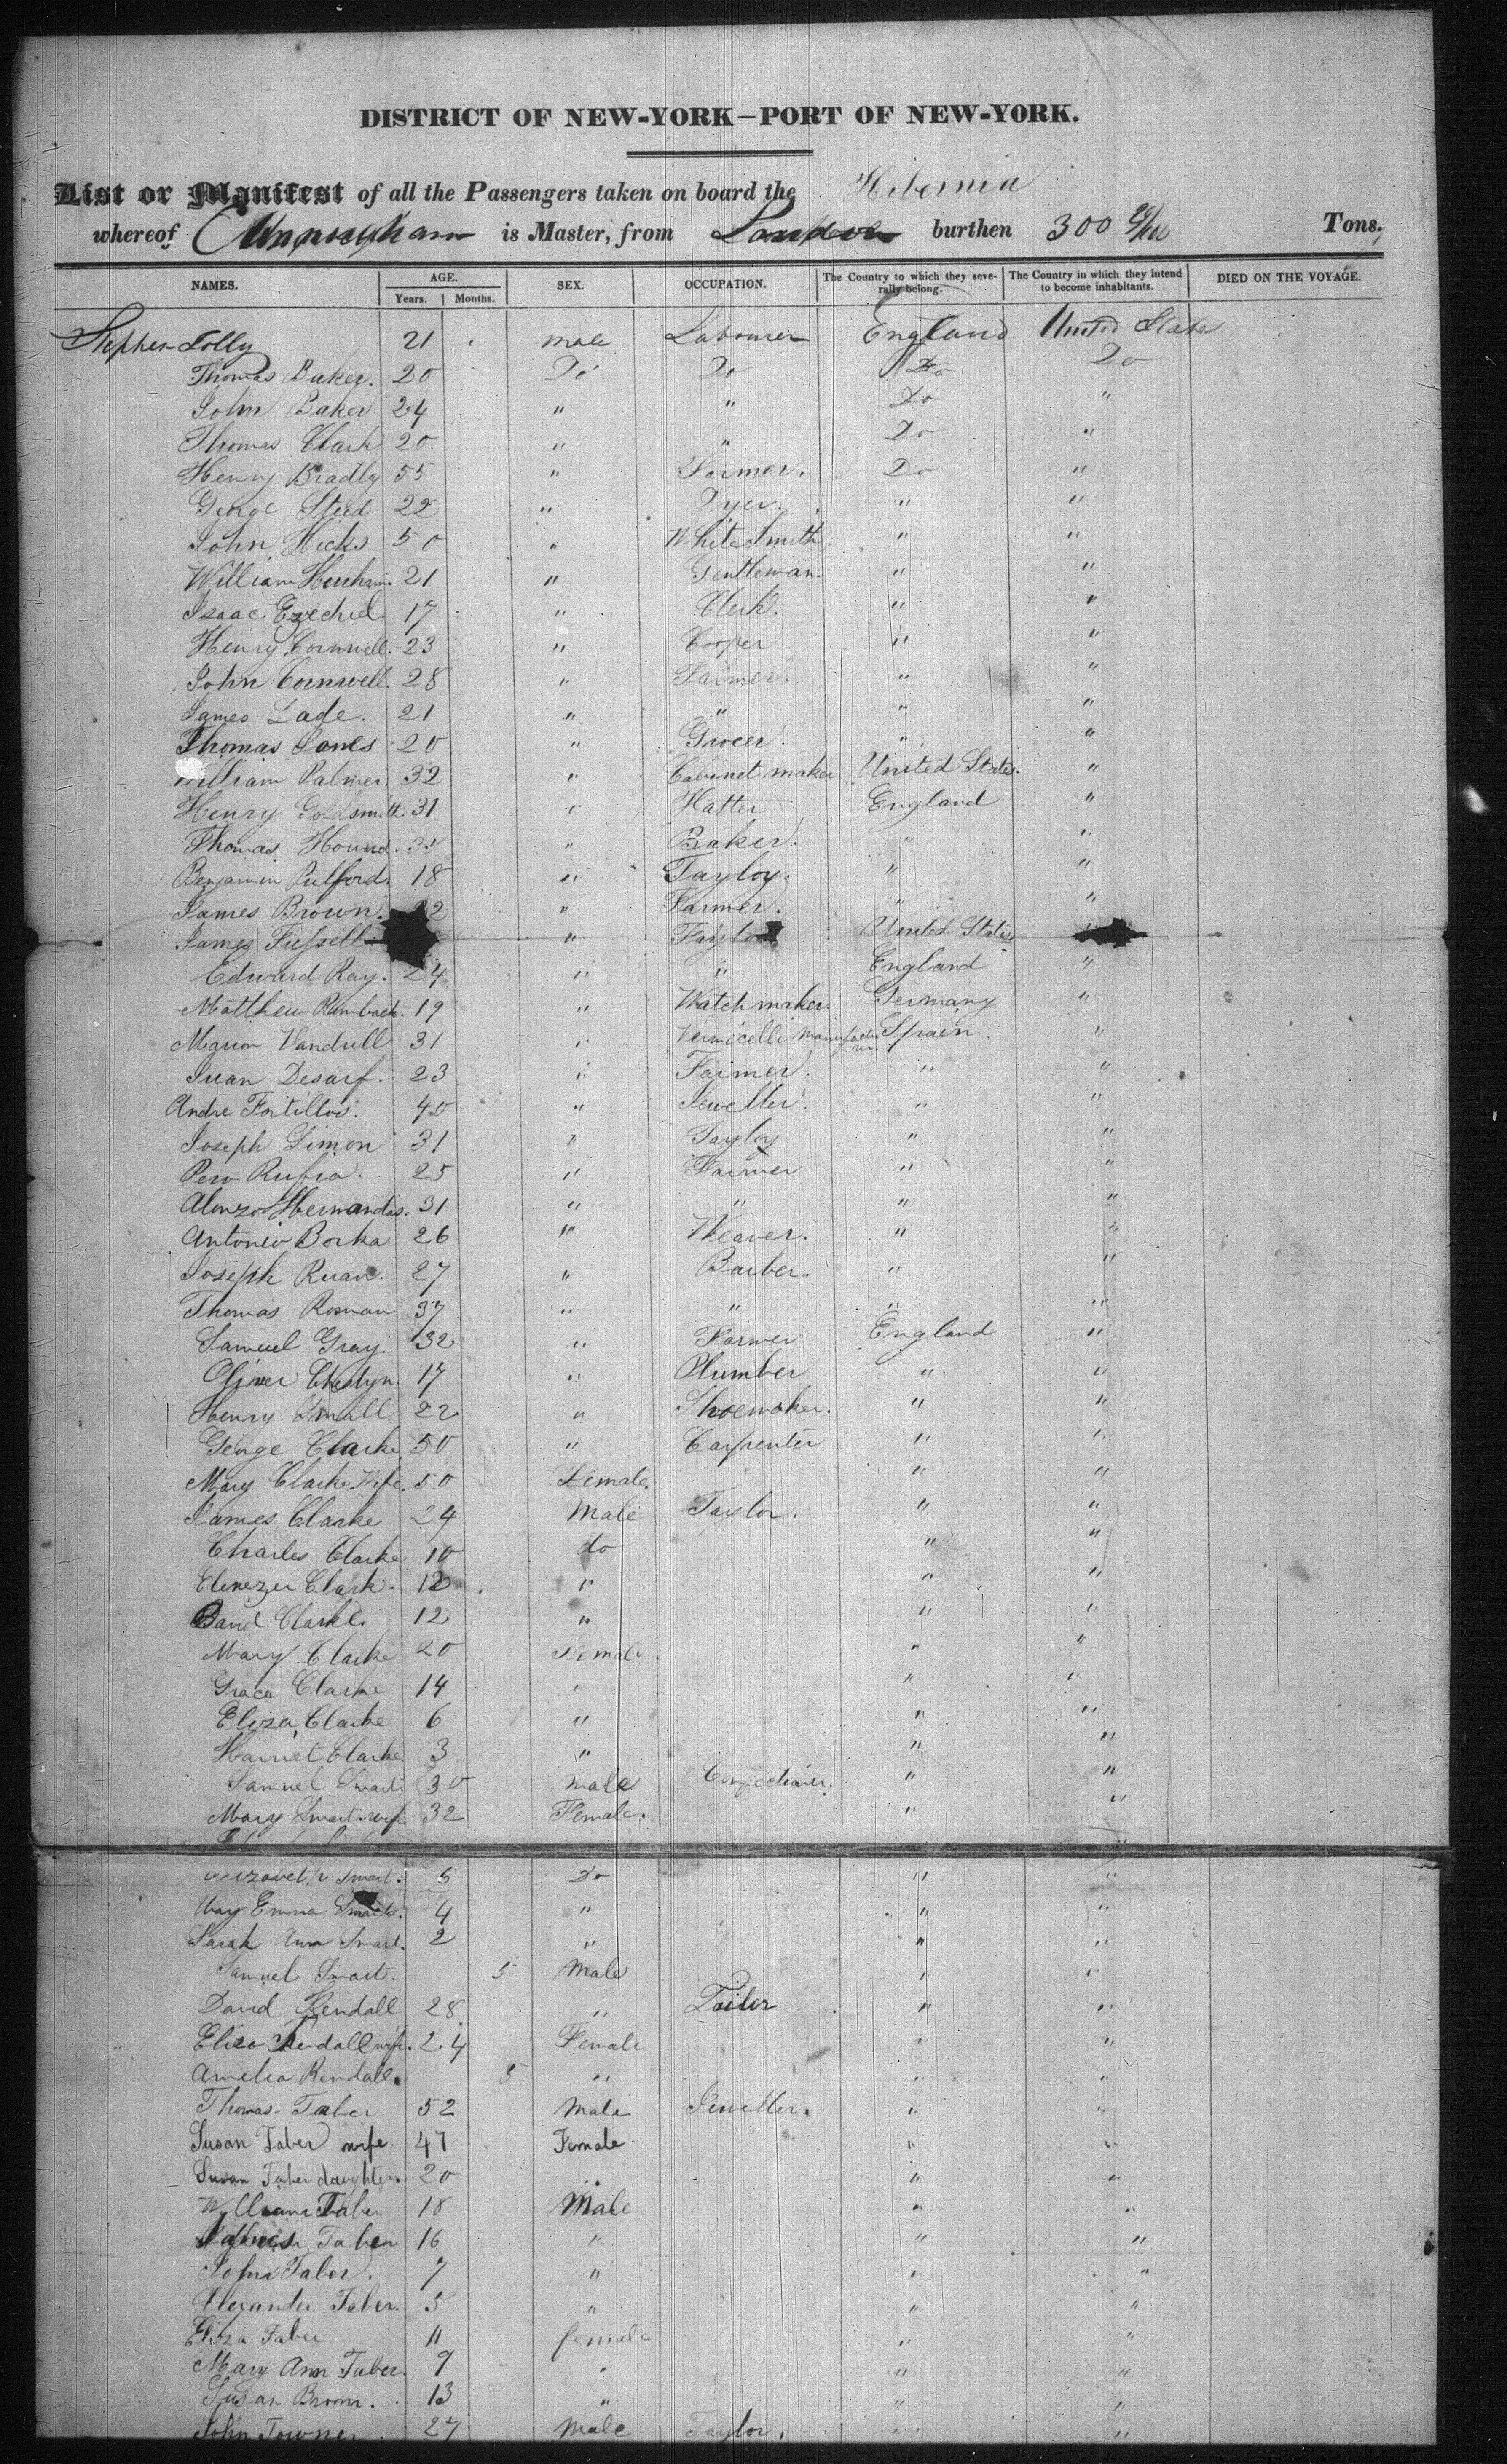 DISTRICT OF NEW-YORK—PORT OF NEW-YORK.
List or Manifest of all the Passengers taken on board the Hibernia
whereof is Master, from London burthen 300 Tons.
NAMES. AGE. SEX. OCCUPATION. The Country to which they severally belong. The Country in which they intend to become inhabitants. DIED ON THE VOYAGE.
Years. Months.
Stephen Lolly 21 male Labourer England United States
Thomas Baker. 20 Do Do Do Do
John Baker 24 " " Do "
Thomas Clark 20 " " Do "
Henry Bradly 55 " Farmer. Do "
George Steed 22 " Dyer. " "
John Hicks 50 " White Smith " "
William 21 " Gentleman. " "
Isaac Ezechiel 17 " Clerk. " "
Henry Cornwell. 23 " Cooper " "
John Cornwell. 28 " Farmer. " "
James Lade. 21 " " " "
Thomas Jones 20 " Grocer " "
William Palmer 32 " Cabinet maker United States. "
Henry Goldsmith 31 " Hatter England "
Thomas Hound. 35 " Baker. " "
Benjamin Pulford 18 " Taylor. " "
James Brown. 22 " Farmer. " "
James Fussell " Taylor United States
Edward Ray. 24 " " England "
Matthew Rumbach. 19 " Watch maker. Germany "
Vandrill 31 " Vermicelli Manufacturer Spain. "
Juan Desarf. 23 " Farmer. " "
Andre Fortillos. 40 " Jeweller. " "
Joseph Simon 31 " Taylor " "
Pew Rufia. 25 " Farmer " "
Alonzo Hernandos. 31 " " " "
Antonio Borka 26 " Weaver. " "
Joseph Ruan. 27 " Barber. " "
Thomas Roman 37 " " " "
Samuel Gray 32 " Farmer England "
Oliver Cheslyn. 17 " Plumber " "
Henry Small 22 " Shoemaker. " "
George Clarke 50 " Carpenter " "
Mary Clarke Wife. 50 Female. " "
James Clarke 24 Male Taylor. " "
Charles Clarke 10 do " "
Ebenezer Clark. 12 " " "
David Clarke. 12 " " "
Mary Clarke 20 Female " "
Grace Clarke 14 " " "
Eliza Clarke 6 " " "
Harriet Clarke 3 " " "
Samuel Smart 30 male Confectioner. " "
Mary Smart wife 32 Female. " "
Elizabeth Smart. 5 Do " "
Mary Emma Smart. 4 " " "
Sarah Ann Smart. 2 " " "
Samuel Smart. 5 Male " "
David Kendall 28 " Tailor " "
Eliza Kendall wife. 24 Female " "
Amelia Kendall. 5 " " "
Thomas Taber 52 Male Jeweller. " "
Susan Taber wife 47 Female " "
Susan Taber daughter 20 " " "
William Taber 18 Male " "
Taber 16 " " "
John Taber. 7 " " "
Alexander Taber. 5 " " "
Eliza Taber 11 female " "
Mary Ann Taber. 9 " " "
Susan Broom. 13 " " "
John Towner. 27 Male Taylor. " "